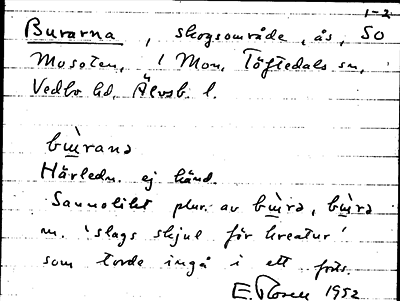 1-2
Burarna, skogsområde, ås, SO
Mosoten, i Mon, Töftedals sn,
Vedbo hd, Älvsb. l.
bù̲ranə
Härledn. ej känd.
Sannolikt plur. av bù̲rə, bù̲rə
m. 'slags skjul för kreatur'
som torde ingå i ett förts.
E. 1952